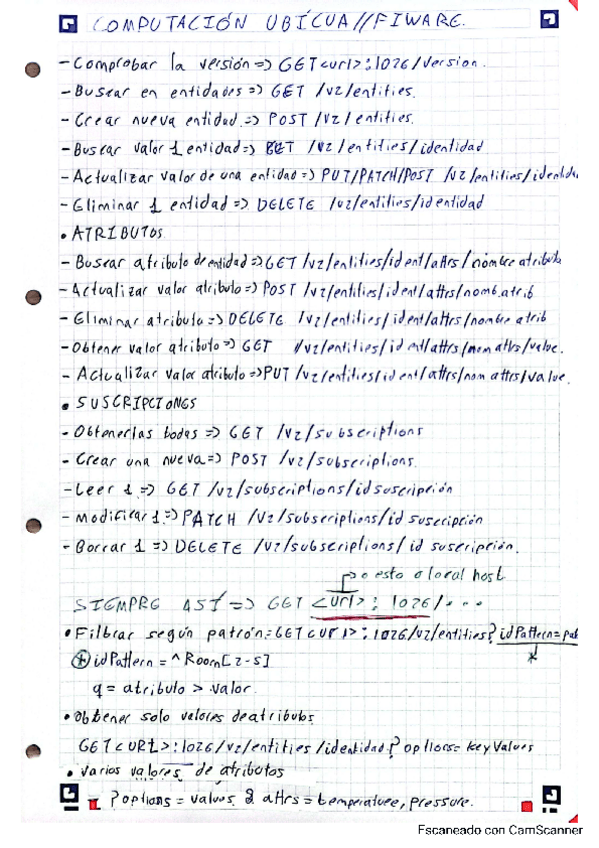 COMPUTACIÓN UBÍCUA//FIWARE.
- Comprobar la versión => GET <url>:1026/version.
- Buscar en entidades => GET /v2/entities.
- Crear nueva entidad. => POST /v2/entities.
- Buscar valor 1 entidad => GET /v2/entities/identidad
- Actualizar valor de una entidad => PUT/PATCH/POST /v2/entities/identida
- Eliminar 1 entidad => DELETE /v2/entities/identidad
• ATRIBUTOS
- Buscar atributo de entidad => GET /v2/entities/ident/attrs/nombre atributo
- Actualizar valor atributo => POST /v2/entities/ident/attrs/nomb.atrib
- Eliminar atributo => DELETE /v2/entities/ident/attrs/nombre atrib
- Obtener valor atributo => GET /v2/entities/ident/attrs/nom attrs/value.
- Actualizar valor atributo => PUT /v2/entities/ident/attrs/nom attrs/value.
• SUSCRIPCIONES
- Obtenerlas todas => GET /v2/subscriptions
- Crear una nueva => POST /v2/subscriptions.
- Leer 1 => GET /v2/subscriptions/id suscripción
- Modificar 1 => PATCH /v2/subscriptions/id suscripción
- Borrar 1 => DELETE /v2/subscriptions/id suscripción.
o esto o local host
SIEMPRE ASÍ => GET <url>: 1026/...
• Filtrar según patrón = GET <url>:1026/v2/entities?idPattern=pat
* idPattern = ^Room[2-5] *
q = atributo > valor.
• Obtener solo valores de atributos
GET <URL>:1026/v2/entities/identidad? options= keyValues
• Varios valores de atributos
? options = values & attrs = temperature, pressure.
Escaneado con CamScanner